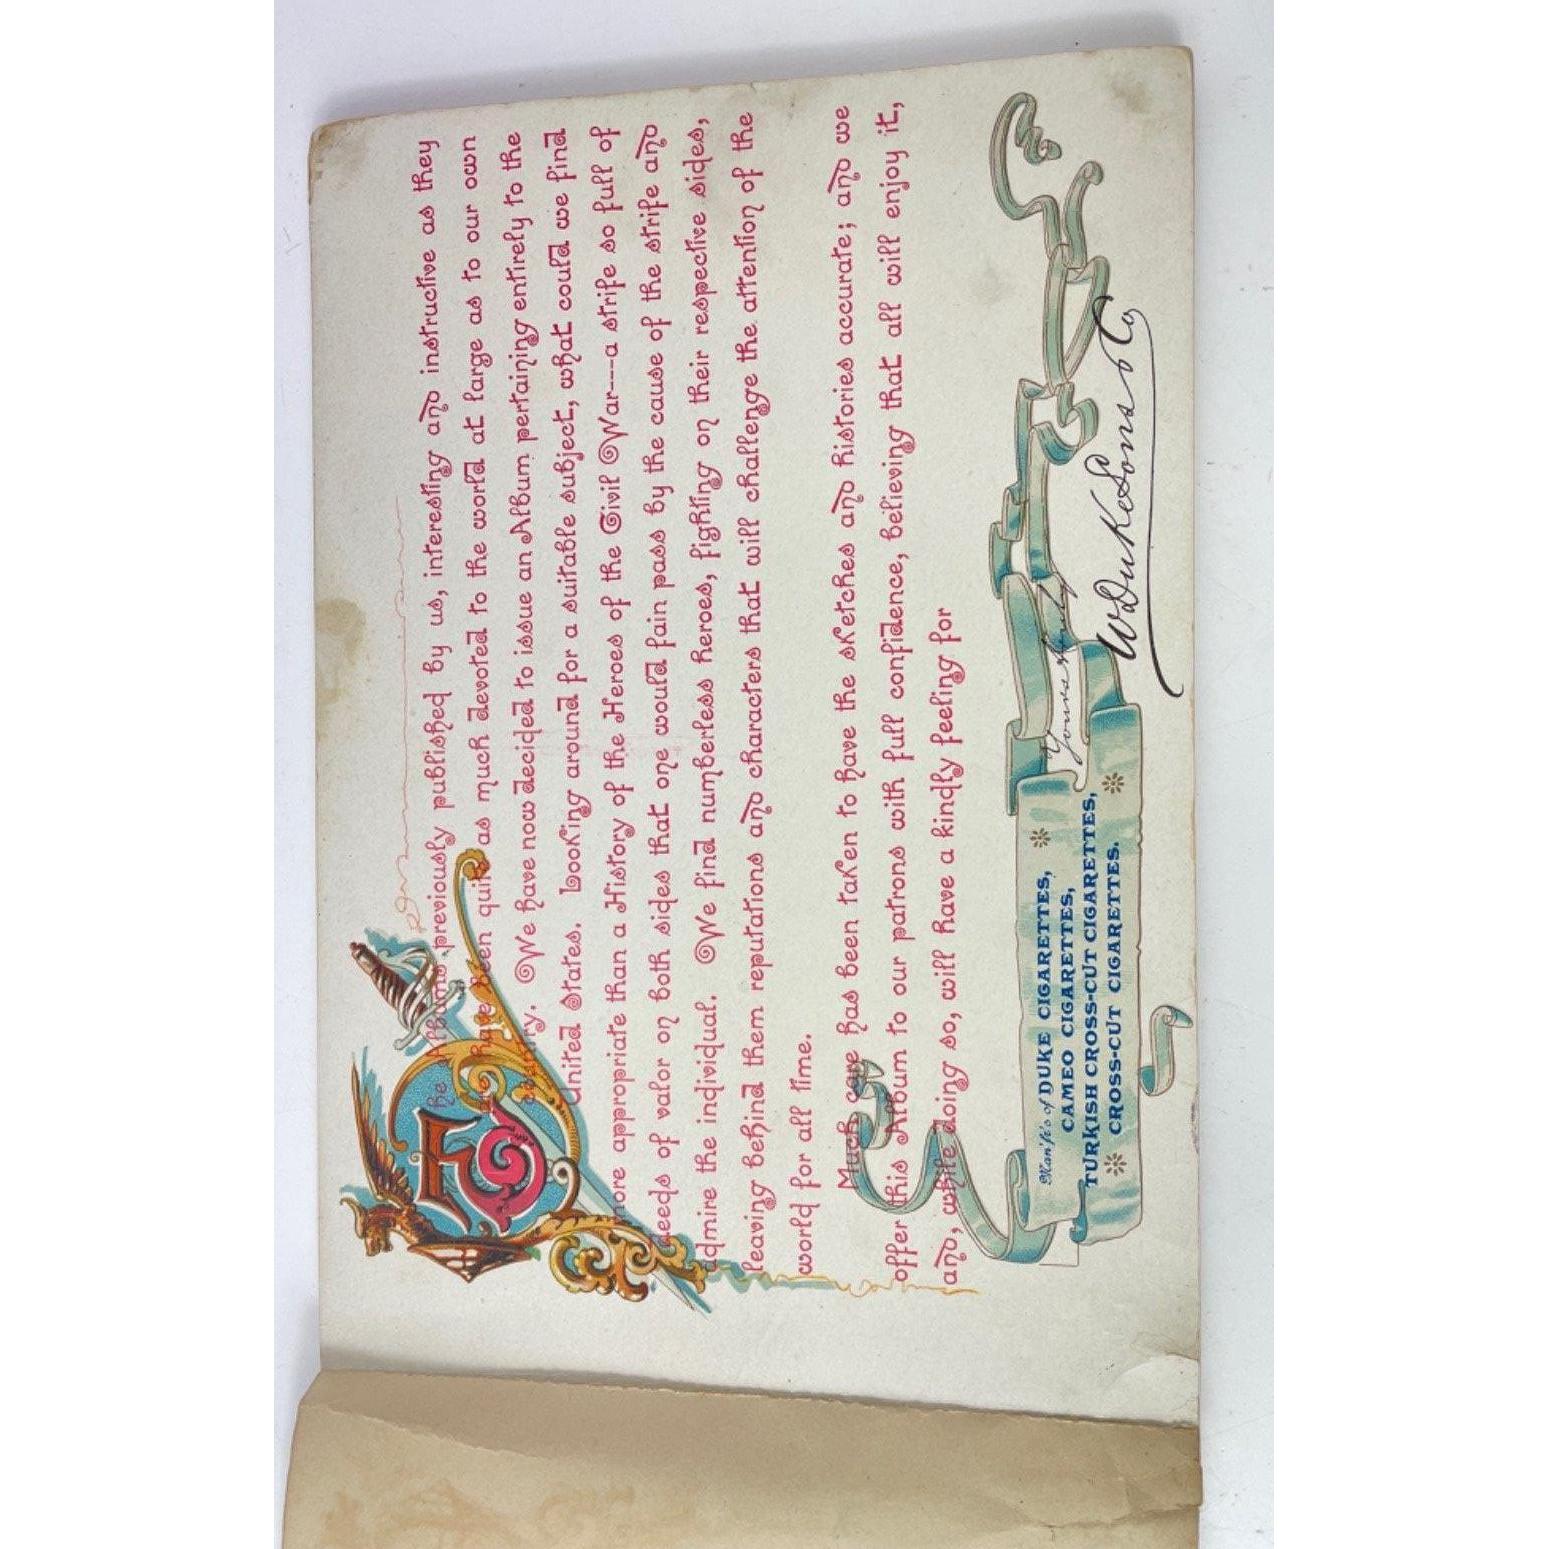 The Albums previously published by us, interesting and instructive as they
may have been quite as much devoted to the world at large as to our own
country. We have now decided to issue an Album pertaining entirely to the
United States. Looking around for a suitable subject, what could we find
more appropriate than a History of the Heroes of the Civil War---a strife so full of
deeds of valor on both sides that one would fain pass by the cause of the strife and
admire the individual. We find numberless heroes, fighting on their respective sides,
leaving behind them reputations and characters that will challenge the attention of the
world for all time.
Much care has been taken to have the sketches and histories accurate; and we
offer this Album to our patrons with full confidence, believing that all will enjoy it,
and, while doing so, will have a kindly feeling for
Yours truly
W Duke Sons & Co
Man'f'r's of DUKE CIGARETTES,
CAMEO CIGARETTES,
TURKISH CROSS-CUT CIGARETTES,
CROSS-CUT CIGARETTES.